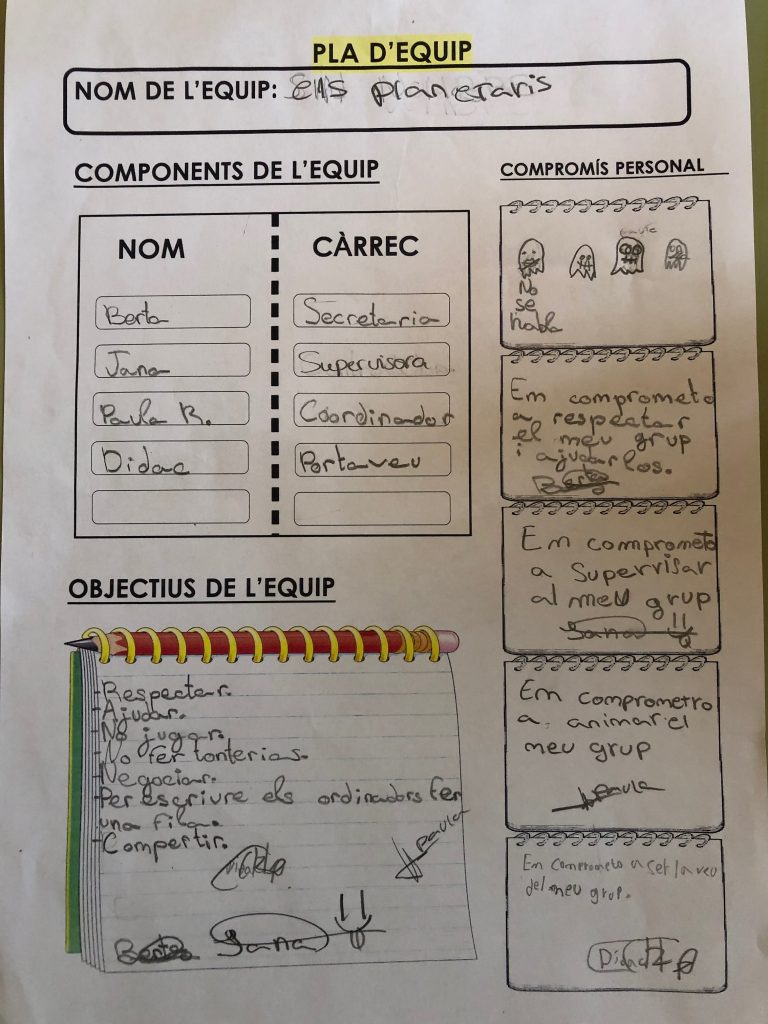 PLA D'EQUIP
NOM DE L'EQUIP: Els planeraris
COMPONENTS DE L'EQUIP
NOM CÀRREC
Berta Secretaria
Jana Supervisora
Paula R. Coordinador
Didac Portaveu
OBJECTIUS DE L'EQUIP
-Respectar.
-Ajudar.
-No jugar.
-No fer tonterias.
-Negociar.
-Per escriure els ordinadors fer
una fila.
-Compartir.
Paula
Berta Jana
COMPROMÍS PERSONAL
No
se
habla
Em comprometo
a respectar
el meu grup
i ajudarlos.
Berta
Em comprometo
a Supervisar
al meu grup
Jana
Em comprometro
a animar el
meu grup
Paula
Em comprometo a ser la veu
del meu grup.
Didac